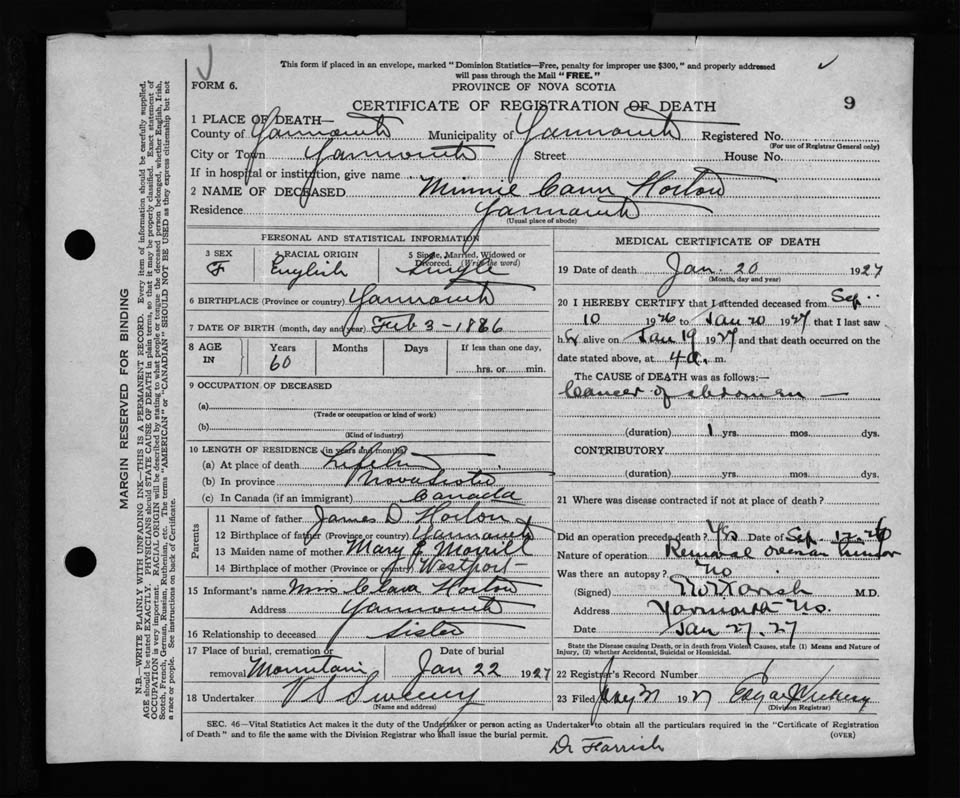 This form if placed in an envelope, marked "Dominion Statistics—Free, penalty for improper use $300," and properly addressed
will pass through the Mail "FREE."
FORM 6.
PROVINCE OF NOVA SCOTIA
CERTIFICATE OF REGISTRATION OF DEATH
9
1 PLACE OF DEATH—
County of Yarmouth Municipality of Yarmouth Registered No.
(For use of Registrar General only)
City or Town Yarmouth Street House No.
If in hospital or institution, give name
2 NAME OF DECEASED Minnie Cann Horton
Residence Yarmouth
(Usual place of abode)
PERSONAL AND STATISTICAL INFORMATION
3 SEX 4 RACIAL ORIGIN 5 Single, Married, Widowed or Divorced. (Write the word)
F English Single
6 BIRTHPLACE (Province or country) Yarmouth
7 DATE OF BIRTH (month, day and year) Feb 3-1866
8 AGE IN Years Months Days If less than one day,
60 hrs. or min.
9 OCCUPATION OF DECEASED
(a)
(Trade or occupation or kind of work)
(b)
(Kind of industry)
10 LENGTH OF RESIDENCE (in years and months)
(a) At place of death
(b) In province Nova Scotia
(c) In Canada (if an immigrant) Canada
Parents
11 Name of father James D Horton
12 Birthplace of father (Province or country) Yarmouth
13 Maiden name of mother Mary E Morrill
14 Birthplace of mother (Province or country) Westport
15 Informant's name Miss Clara Horton
Address Yarmouth
16 Relationship to deceased Sister
17 Place of burial, cremation or removal Mountain Date of burial Jan 22 1927
18 Undertaker V S Sweeny
(Name and address)
MEDICAL CERTIFICATE OF DEATH
19 Date of death Jan. 20 1927
(Month, day and year)
20 I HEREBY CERTIFY that I attended deceased from Sep.
10 1926 to Jan 20 1927 that I last saw
her alive on Jan 19 1927 and that death occurred on the
date stated above, at 4 a. m.
The CAUSE OF DEATH was as follows:—
Cancer of abdomen —
(duration) 1 yrs. mos. dys.
CONTRIBUTORY
(duration) yrs. mos. dys.
21 Where was disease contracted if not at place of death?
Did an operation precede death? Yes Date of Sep. 12-26
Nature of operation Removal ovarian tumor
Was there an autopsy? No
(Signed) Farish M.D.
Address Yarmouth N.S.
Date Jan 27.27
State the Disease causing Death, or in death from Violent Causes, state (1) Means and Nature of
Injury, (2) whether Accidental, Suicidal or Homicidal.
22 Registrar's Record Number
23 Filed 1927 Edgar
(Division Registrar)
SEC. 46—Vital Statistics Act makes it the duty of the Undertaker or person acting as Undertaker to obtain all the particulars required in the "Certificate of Registration
of Death" and to file the same with the Division Registrar who shall issue the burial permit. (OVER)
Dr Farrish
MARGIN RESERVED FOR BINDING
N.B.—WRITE PLAINLY WITH UNFADING INK—THIS IS A PERMANENT RECORD. Every item of information should be carefully supplied.
AGE should be stated EXACTLY. PHYSICIANS should STATE CAUSE OF DEATH in plain terms, so that it may be properly classified. Exact statement of
OCCUPATION is very important. RACIAL ORIGIN will be described by stating to what people or tongue the deceased person belonged, whether English, Irish,
Scotch, French, German, Russian, Ruthenian, etc. The terms "AMERICAN" or "CANADIAN" SHOULD NOT BE USED as they express citizenship but not
a race or people. See instructions on back of Certificate.